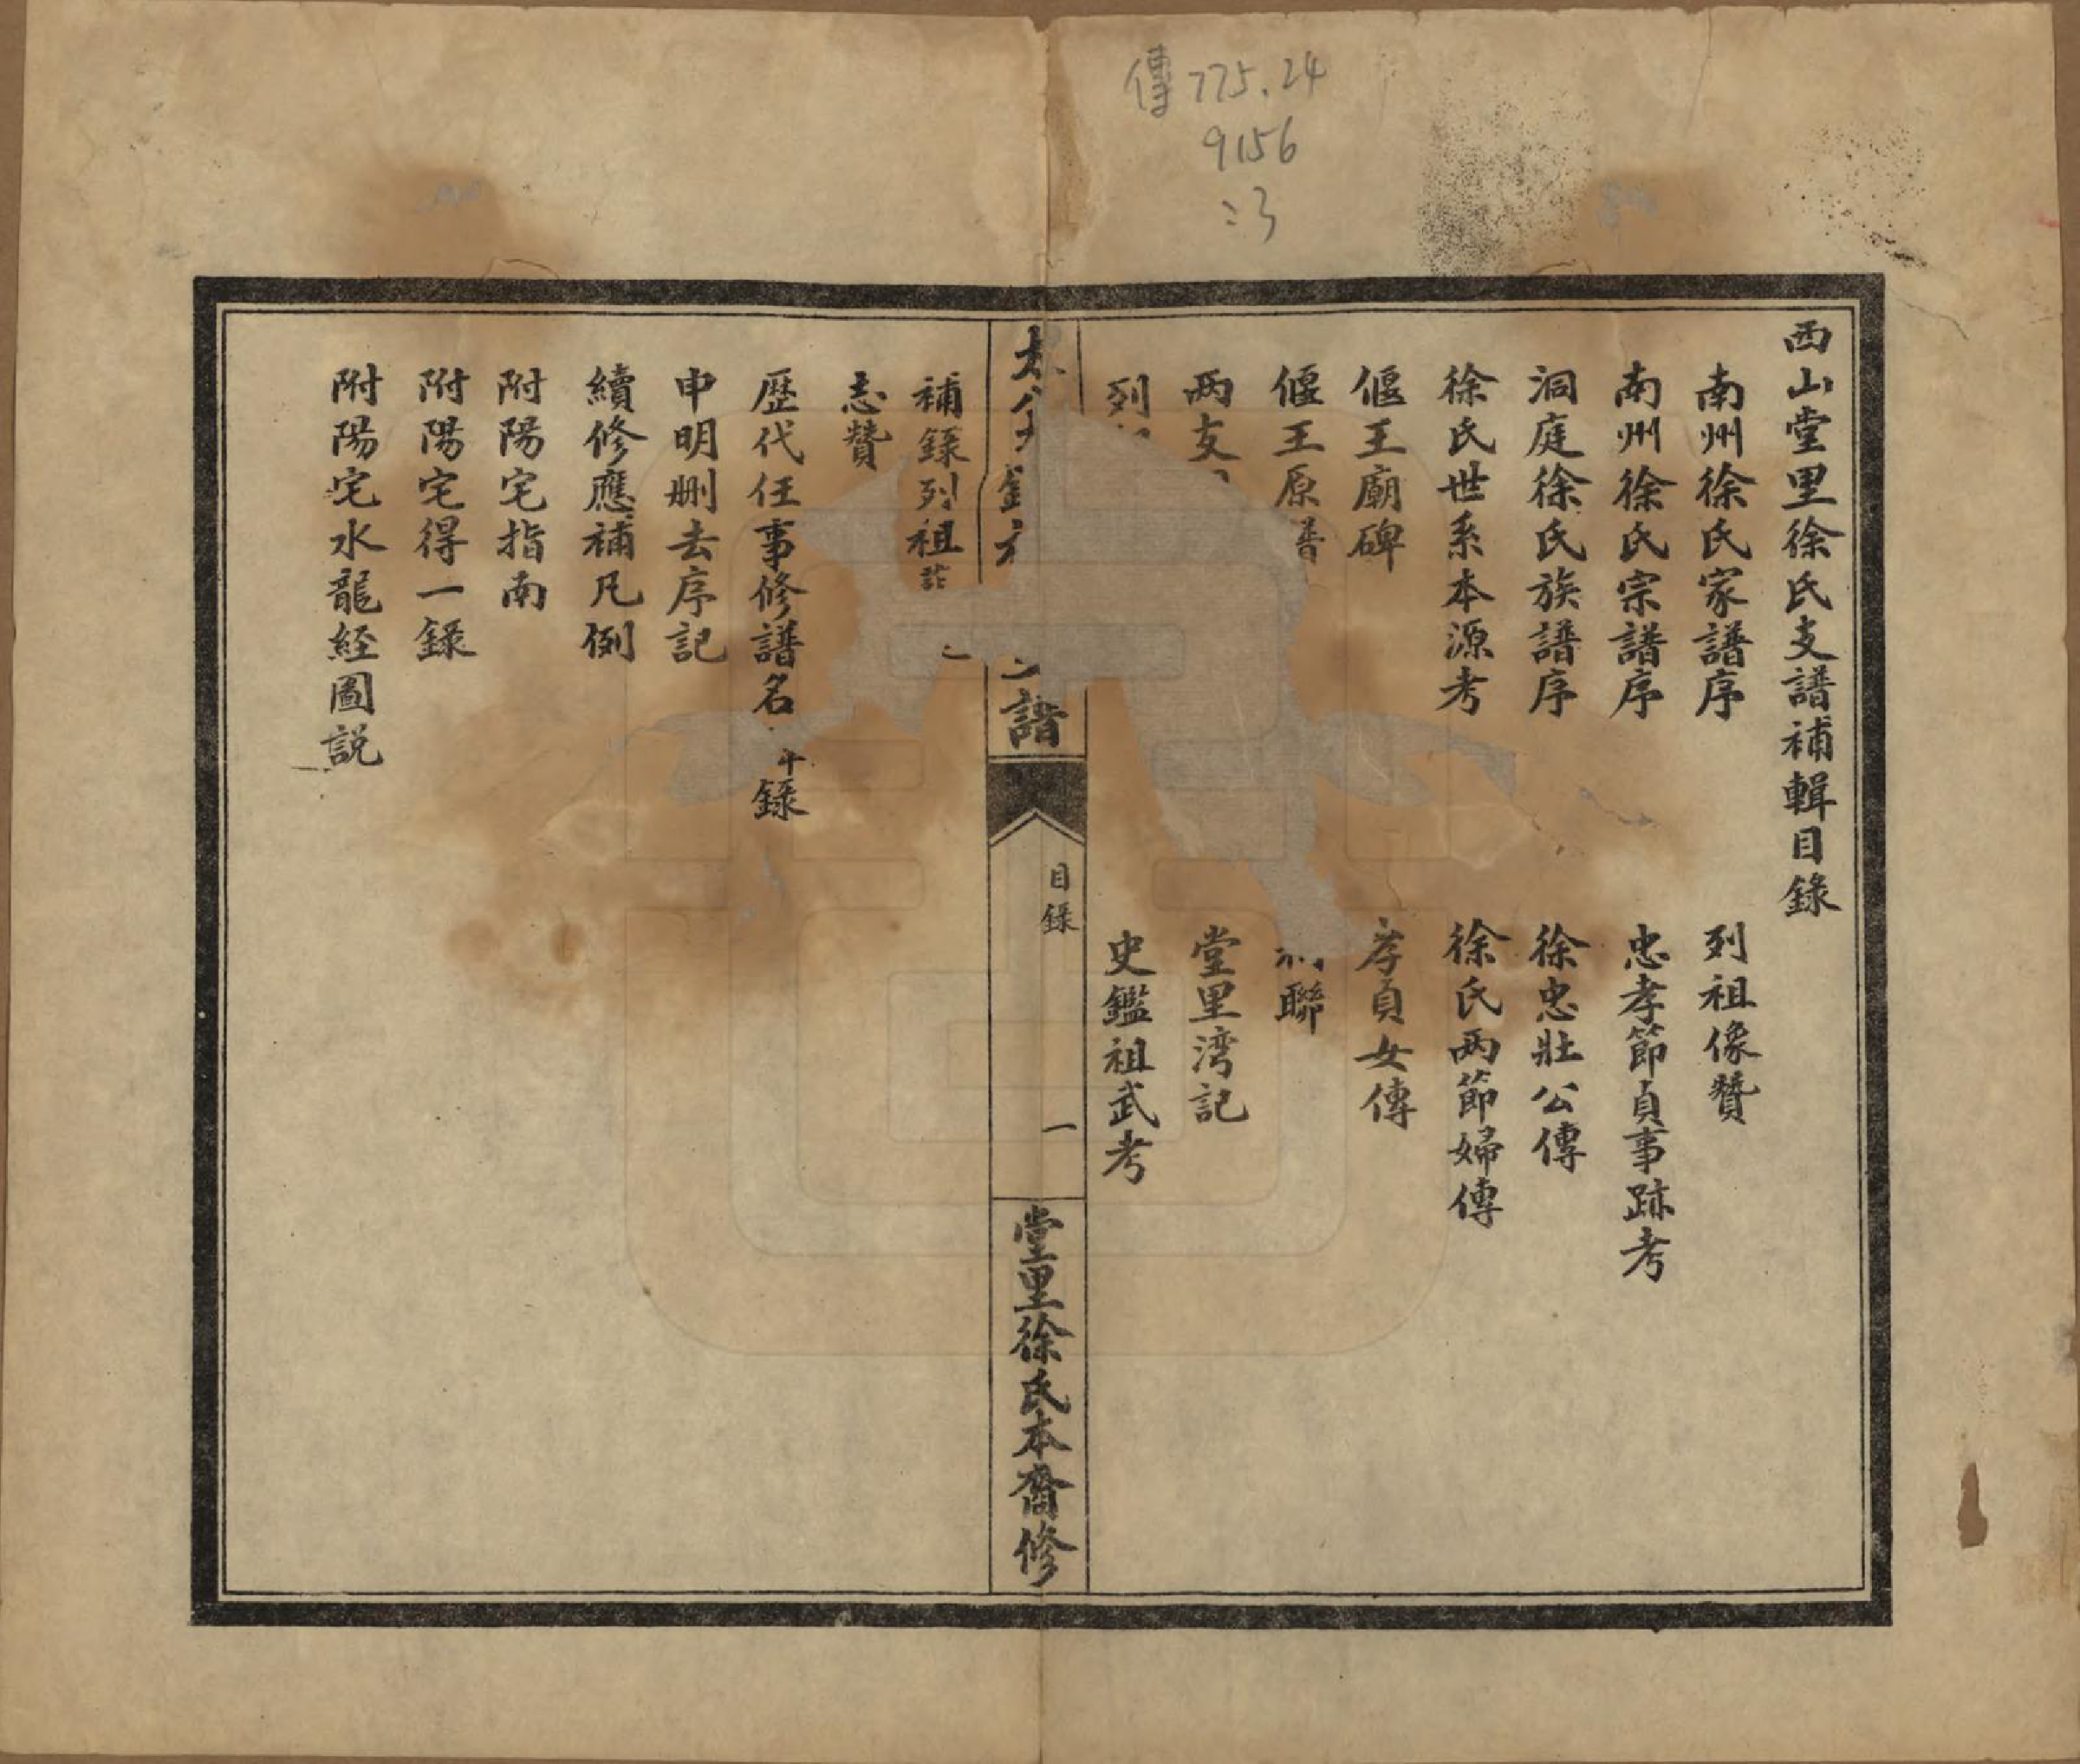 傳775.24
9156
:3
西山堂里徐氏支譜補輯目錄
南州徐氏家譜序
列祖像贊
南州徐氏宗譜序
忠孝節貞事跡考
洞庭徐氏族譜序
徐忠壯公傳
徐氏世系本源考
徐氏兩節婦傳
偃王廟碑
孝貞女傳
偃王原譜
聯
两支
堂里湾記
列
史鑑祖武考
譜
目錄
一
堂里徐氏本裔修
補錄列祖
志贊
歷代任事修譜名 錄
申明刪去序記
續修應補凡例
附陽宅指南
附陽宅得一錄
附陽宅水龍經圖説